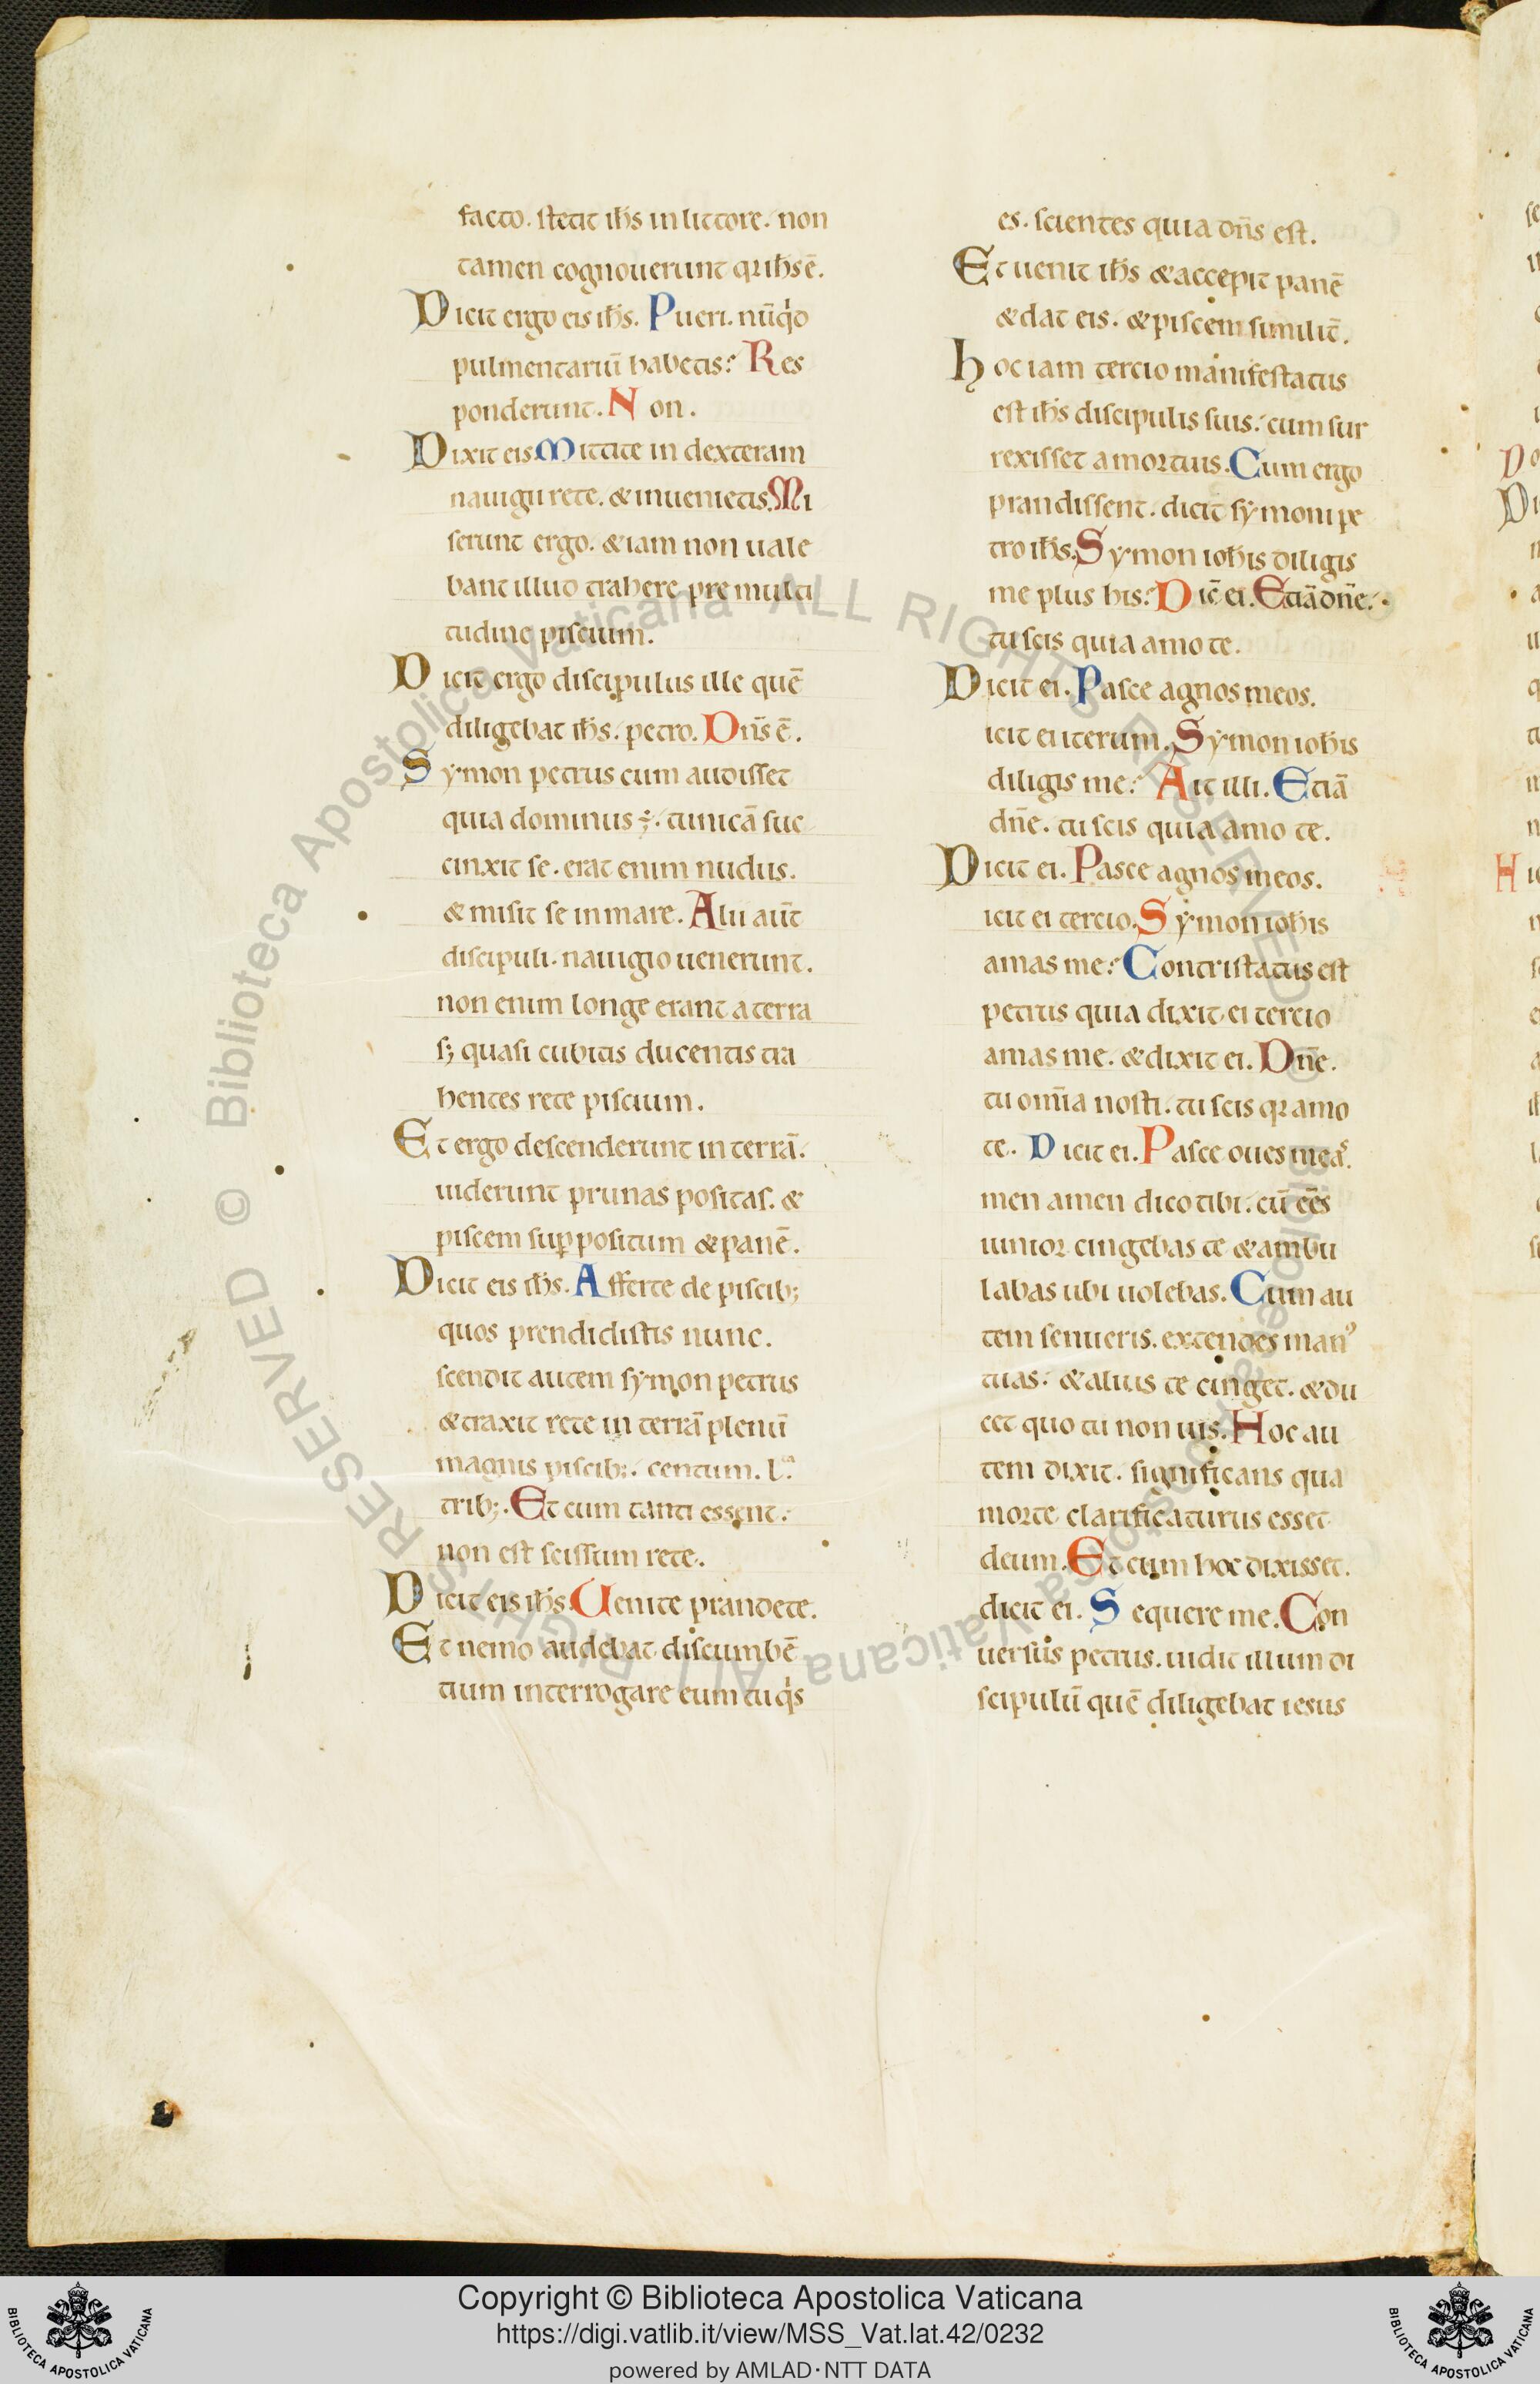 facto. stetit ih̅s in littore. non
tamen cognouerunt qꝛ ih̅s e̅.
Dicit ergo eis ih̅s. Pueri. nu̅qͥd
pulmentariu̅ habetis? Res
ponderunt. Non.
Dixit eis. Mittite in dexteram
nauigii rete. & inuenietis. Mi
serunt ergo. & iam non uale
bant illud trahere pre multi
tudine piscium.
Dicit ergo discipulus ille que̅
diligebat ih̅s. petro. Dn̅s e̅.
Symon petrus cum audisset
quia dominus ÷. tunica̅ suc
cinxit se. erat enim nudus.
& misit se in mare. Alii au̅t
discipuli. nauigio uenerunt.
non enim longe erant a terra
s; quasi cubitis ducentis tra
hentes rete piscium.
Et ergo descenderunt in terra̅.
uiderunt prunas positas. &
piscem suppositum & pane̅.
Dicit eis ih̅s. Afferte de piscib;
quos prendidistis nunc.
scendit autem symon petrus
& traxit rete in terra̅ plenu̅
magnis piscib;. centum. l.ᵃ
trib;. Et cum tanti essent.
non est scissum rete.
Dicit eis ih̅s. Uenite prandete.
Et nemo audebat discumbe̅
tium interrogare eum tu qͥs
es. scientes quia dn̅s est.
Et uenit ih̅s & accepit pane̅
& dat eis. & piscem similit̅.
hoc iam tercio manifestatus
est ih̅s discipulis suis. cum sur
rexisset a mortuis. Cum ergo
prandissent. dicit symoni pe
tro ih̅s. Symon ioh̅is diligis
me plus his? Dic̅ ei. Etia̅ dn̅e.
tu scis quia amo te.
Dicit ei. Pasce agnos meos.
icit ei iterum. Symon ioh̅is
diligis me? Ait illi. Etia̅
dn̅e. tu scis quia amo te.
Dicit ei. Pasce agnos meos.
icit ei tercio. Symon ioh̅is
amas me? Contristatus est
petrus quia dixit ei tercio
amas me. & dixit ei. Dn̅e.
tu om̅ia nosti. tu scis qꝛ amo
te. Dicit ei. Pasce oues meaˢ.
men amen dico tibi. cu̅ ee̅s
iunior cingebas te & ambu
labas ubi uolebas. Cum au
tem senueris. extendes manꝰ
tuas. & alius te cinget. & du
cet quo tu non uis. Hoc au
tem dixit. significans qua
morte clarificaturus esset
deum. Et cum hoc dixisset.
dicit ei. Sequere me. Con
uersus petrus. uidit illum di
scipulu̅ que̅ diligebat iesus
Copyright © Biblioteca Apostolica Vaticana
https://digi.vatlib.it/view/MSS_Vat.lat.42/0232
powered by AMLAD·NTT DATA